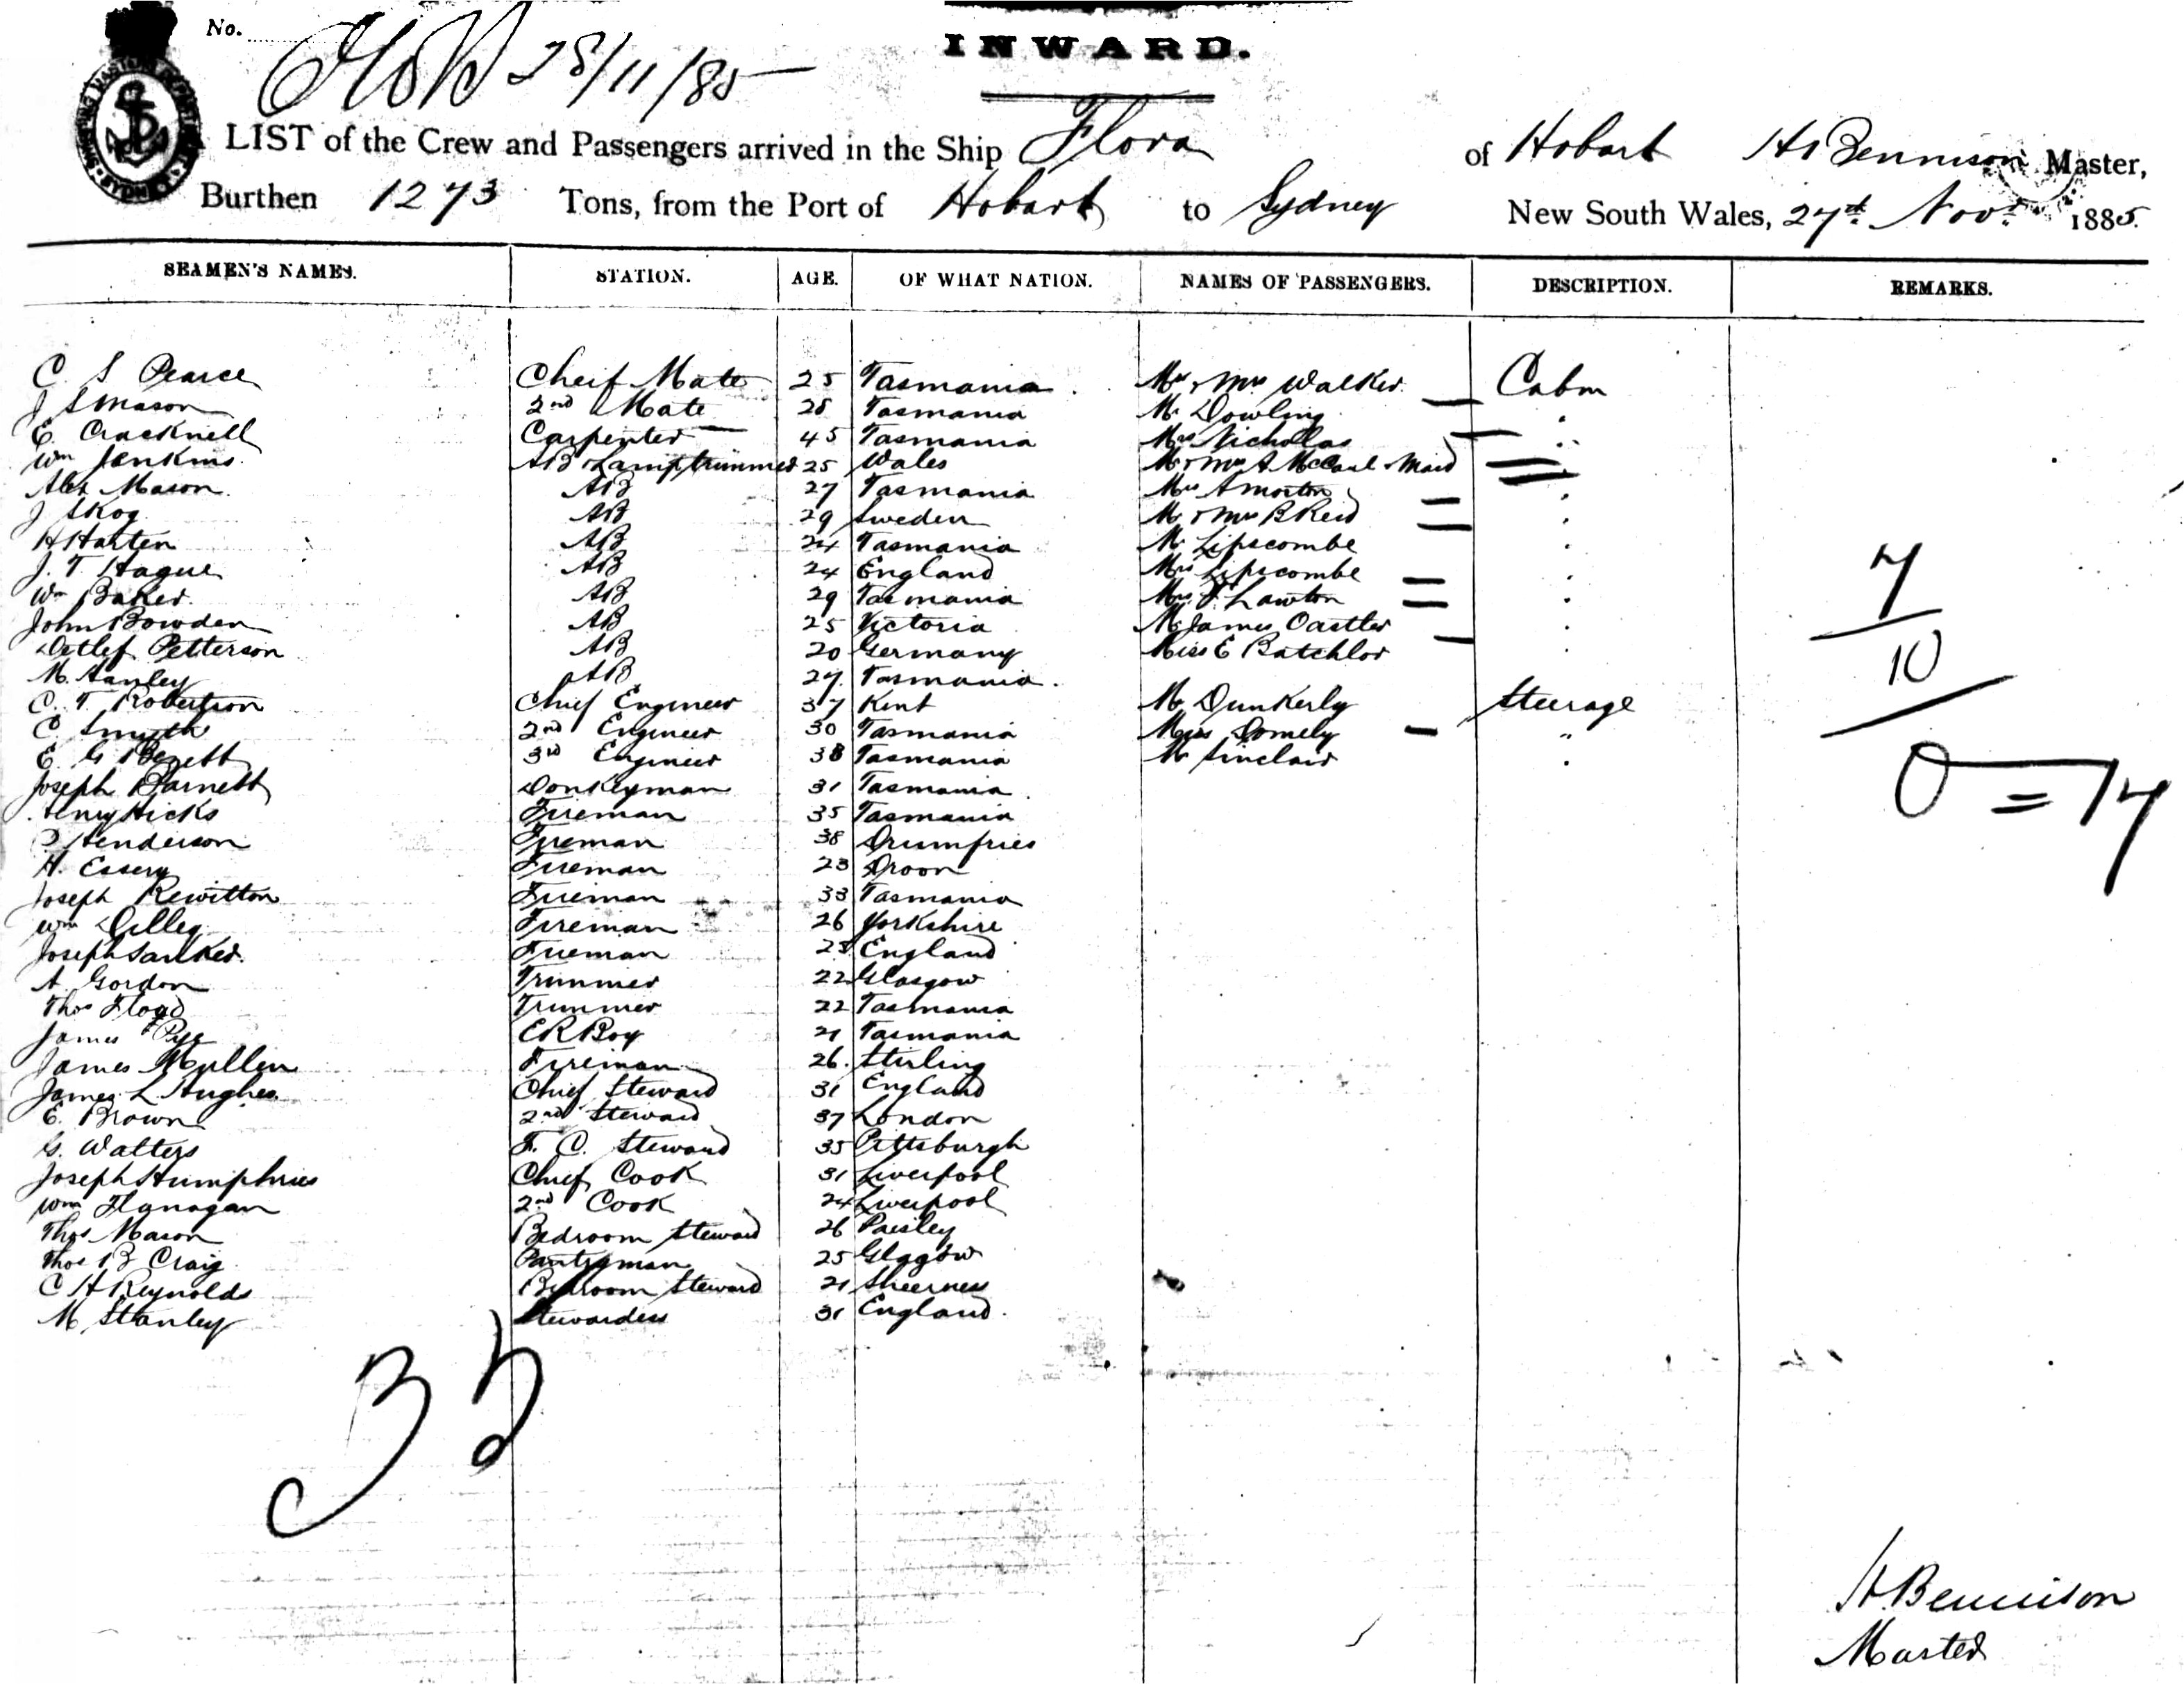 No.
28/11/85
INWARD.
LIST of the Crew and Passengers arrived in the Ship Flora of Hobart H Bennison Master,
Burthen 1273 Tons, from the Port of Hobart to Sydney New South Wales, 27th Novr 1885.
SEAMEN'S NAMES. STATION. AGE. OF WHAT NATION. NAMES OF PASSENGERS. DESCRIPTION. REMARKS.
C. S Pearce Cheif Mate 25 Tasmania Mr & Mrs Walker Cabin
J S Mason 2nd Mate 28 Tasmania Mr Dowling
E. Cracknell Carpenter 45 Tasmania Mrs Nicholas
Wm Jenkins AB & Lamptrimmer 25 Wales Mr & Mrs A McCaul & Maid
Alex Mason AB 27 Tasmania Mrs A Morton
J Skog AB 29 Sweden Mr & Mrs B Reid
H Harten AB 24 Tasmania Mr Lipscombe
J. T. Hague AB 24 England Mrs Lipscombe
Wm Baker AB 29 Tasmania Lawton
John Bowden AB 25 Victoria Mr James Oastler
Detlef Petterson AB 20 Germany Miss E Batchlor
M. Hanley AB 27 Tasmania
C. T. Robertson Chief Engineer 37 Kent Mr Dunkerly Steerage
C Smyth 2nd Engineer 30 Tasmania Miss
E. G 3rd Engineer 38 Tasmania Mr Sinclair
Joseph Barnett Donkeyman 31 Tasmania
Henry Hicks Fireman 35 Tasmania
Henderson Fireman 38 Drumfries
H. Essery Fireman 23 Droon
Joseph Rewitton Fireman 33 Tasmania
Wm Dilley Fireman 26 Yorkshire
Joseph Fireman England
A. Gordon Trimmer 22 Glasgow
Thos Floyd Trimmer 22 Tasmania
James Pye ER Boy 21 Tasmania
James Mullen Fireman 26 Stirling
James L Hughes Chief Steward 31 England
E. Brown 2nd Steward 37 London
G. Walters F. C. Steward 35 Pittsburgh
Joseph Humphries Chief Cook 31 Liverpool
Wm Flanagan 2nd Cook 24 Liverpool
Thos Mason Bedroom Steward 26 Paisley
Thos B Craig Pantryman 25 Glasgow
C H Reynolds Bedroom Steward 21 Sheerness
M Stanley Stewardess 31 England
7
10
0 = 17
35
H. Bennison
Master